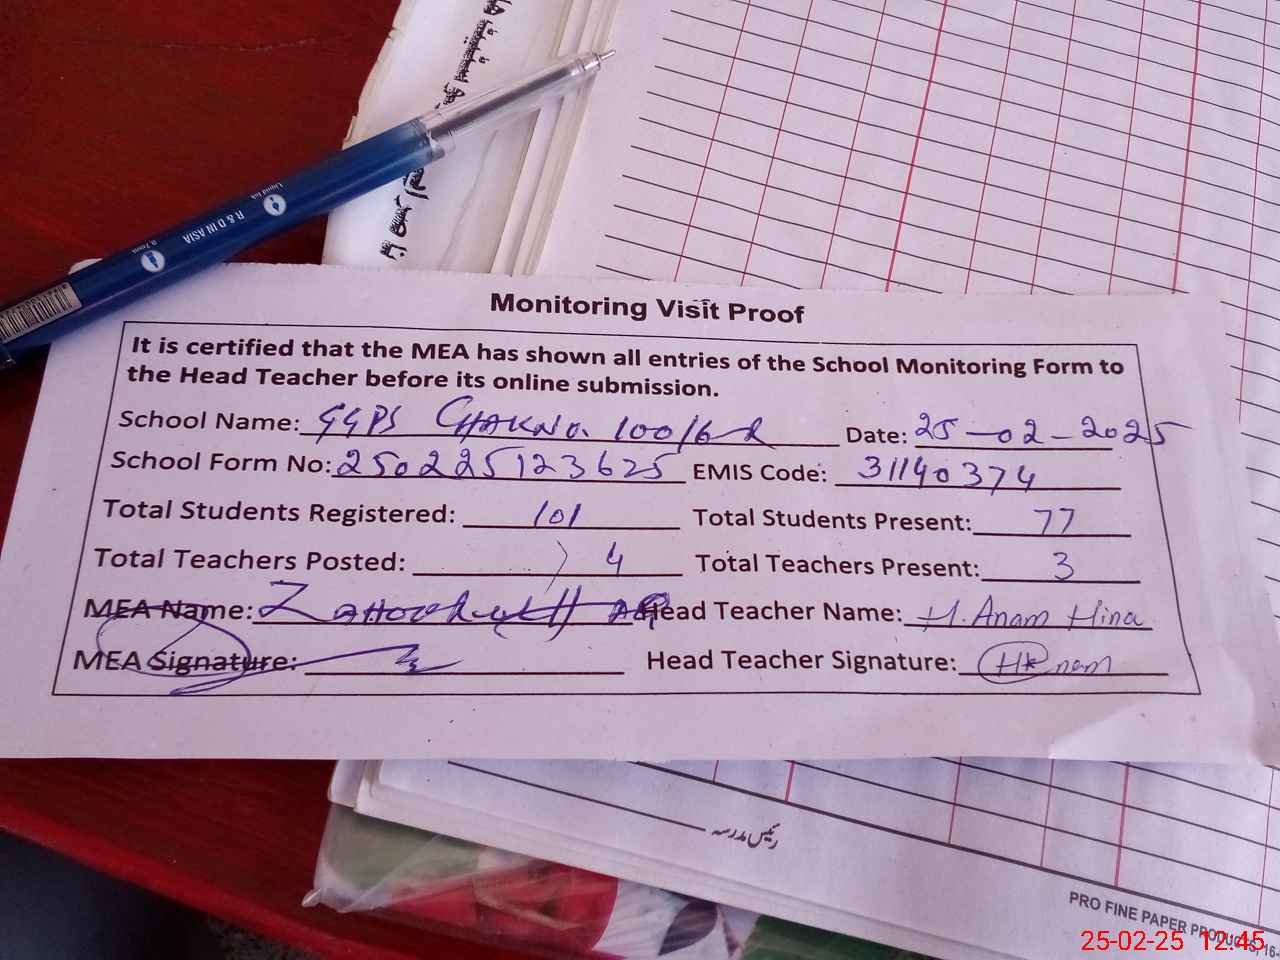 Liquid Ink
R & D IN ASIA
0.7mm
Monitoring Visit Proof
It is certified that the MEA has shown all entries of the School Monitoring Form to
the Head Teacher before its online submission.
School Name: GGPS CHAK No. 100/6R Date: 25-02-2025
School Form No: 250225123625 EMIS Code: 31140374
Total Students Registered: 101 Total Students Present: 77
Total Teachers Posted: 4 Total Teachers Present: 3
MEA Name: Head Teacher Name: H. Anam Hina
MEA Signature: Head Teacher Signature:
رئیس مدرسہ
PRO FINE PAPER PRODUCTS, 16-
25-02-25 12:45